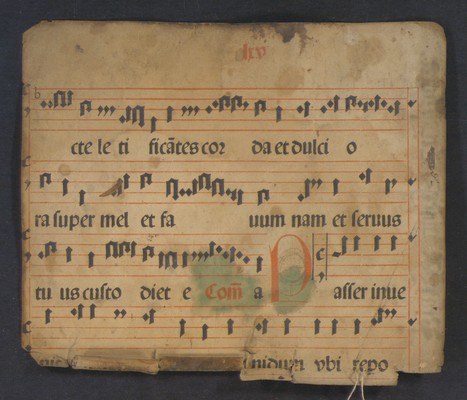 lxv
cte le ti ficātes cor da et dulci o
ra super mel et fa uum nam et seruus
tu us custo diet e Com̄ a P asser inue
nidum vbi repo